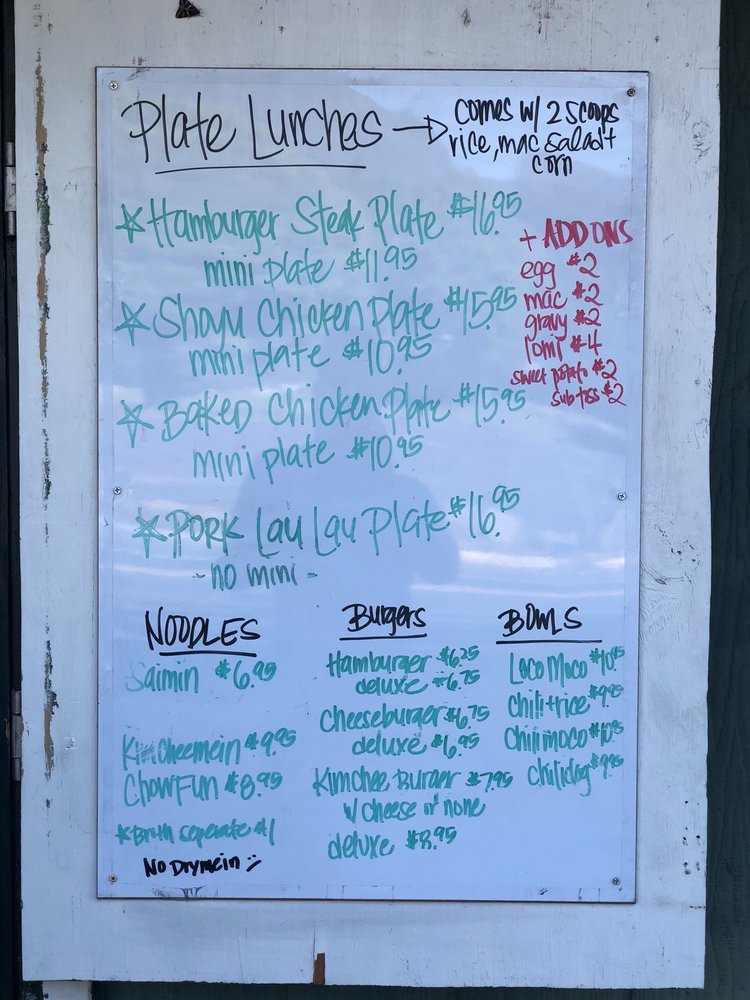 Plate Lunches → comes w/ 2 scoops
rice, mac salad +
corn
☆ Hamburger Steak Plate $16.95
mini plate $11.95
☆ Shoyu Chicken Plate $15.95
mini plate $10.95
☆ Baked Chicken Plate $15.95
mini plate $10.95
☆ Pork Lau Lau Plate $16.95
- no mini -
+ ADD ONS
egg $2
mac $2
gravy $2
lomi $4
sweet potato $2
sub toss $2
NOODLES
Saimin $6.95
Kimcheemein $9.95
Chow Fun $8.95
* Broth seperate $1
No Drymein :)
Burgers
Hamburger $6.25
deluxe $6.75
cheeseburger $6.75
deluxe $6.95
Kimchee Burger $7.95
w/ cheese or none
deluxe $8.95
BOWLS
Loco Moco $10.95
chili + rice $9.95
chili moco $10.95
chilidog $9.95